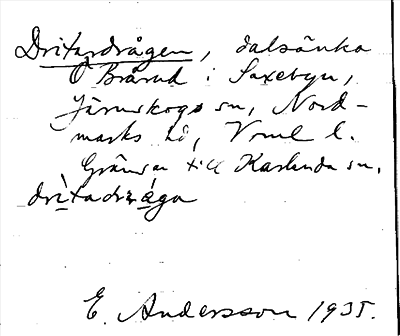 Dritardrågen, dalsänka
O Brårud i Saxebyn,
Järnskogs sn, Nord-
marks hd, Vrml l.
Gränsar till Karlanda sn.
drìtadrága
E. Andersson 1935.